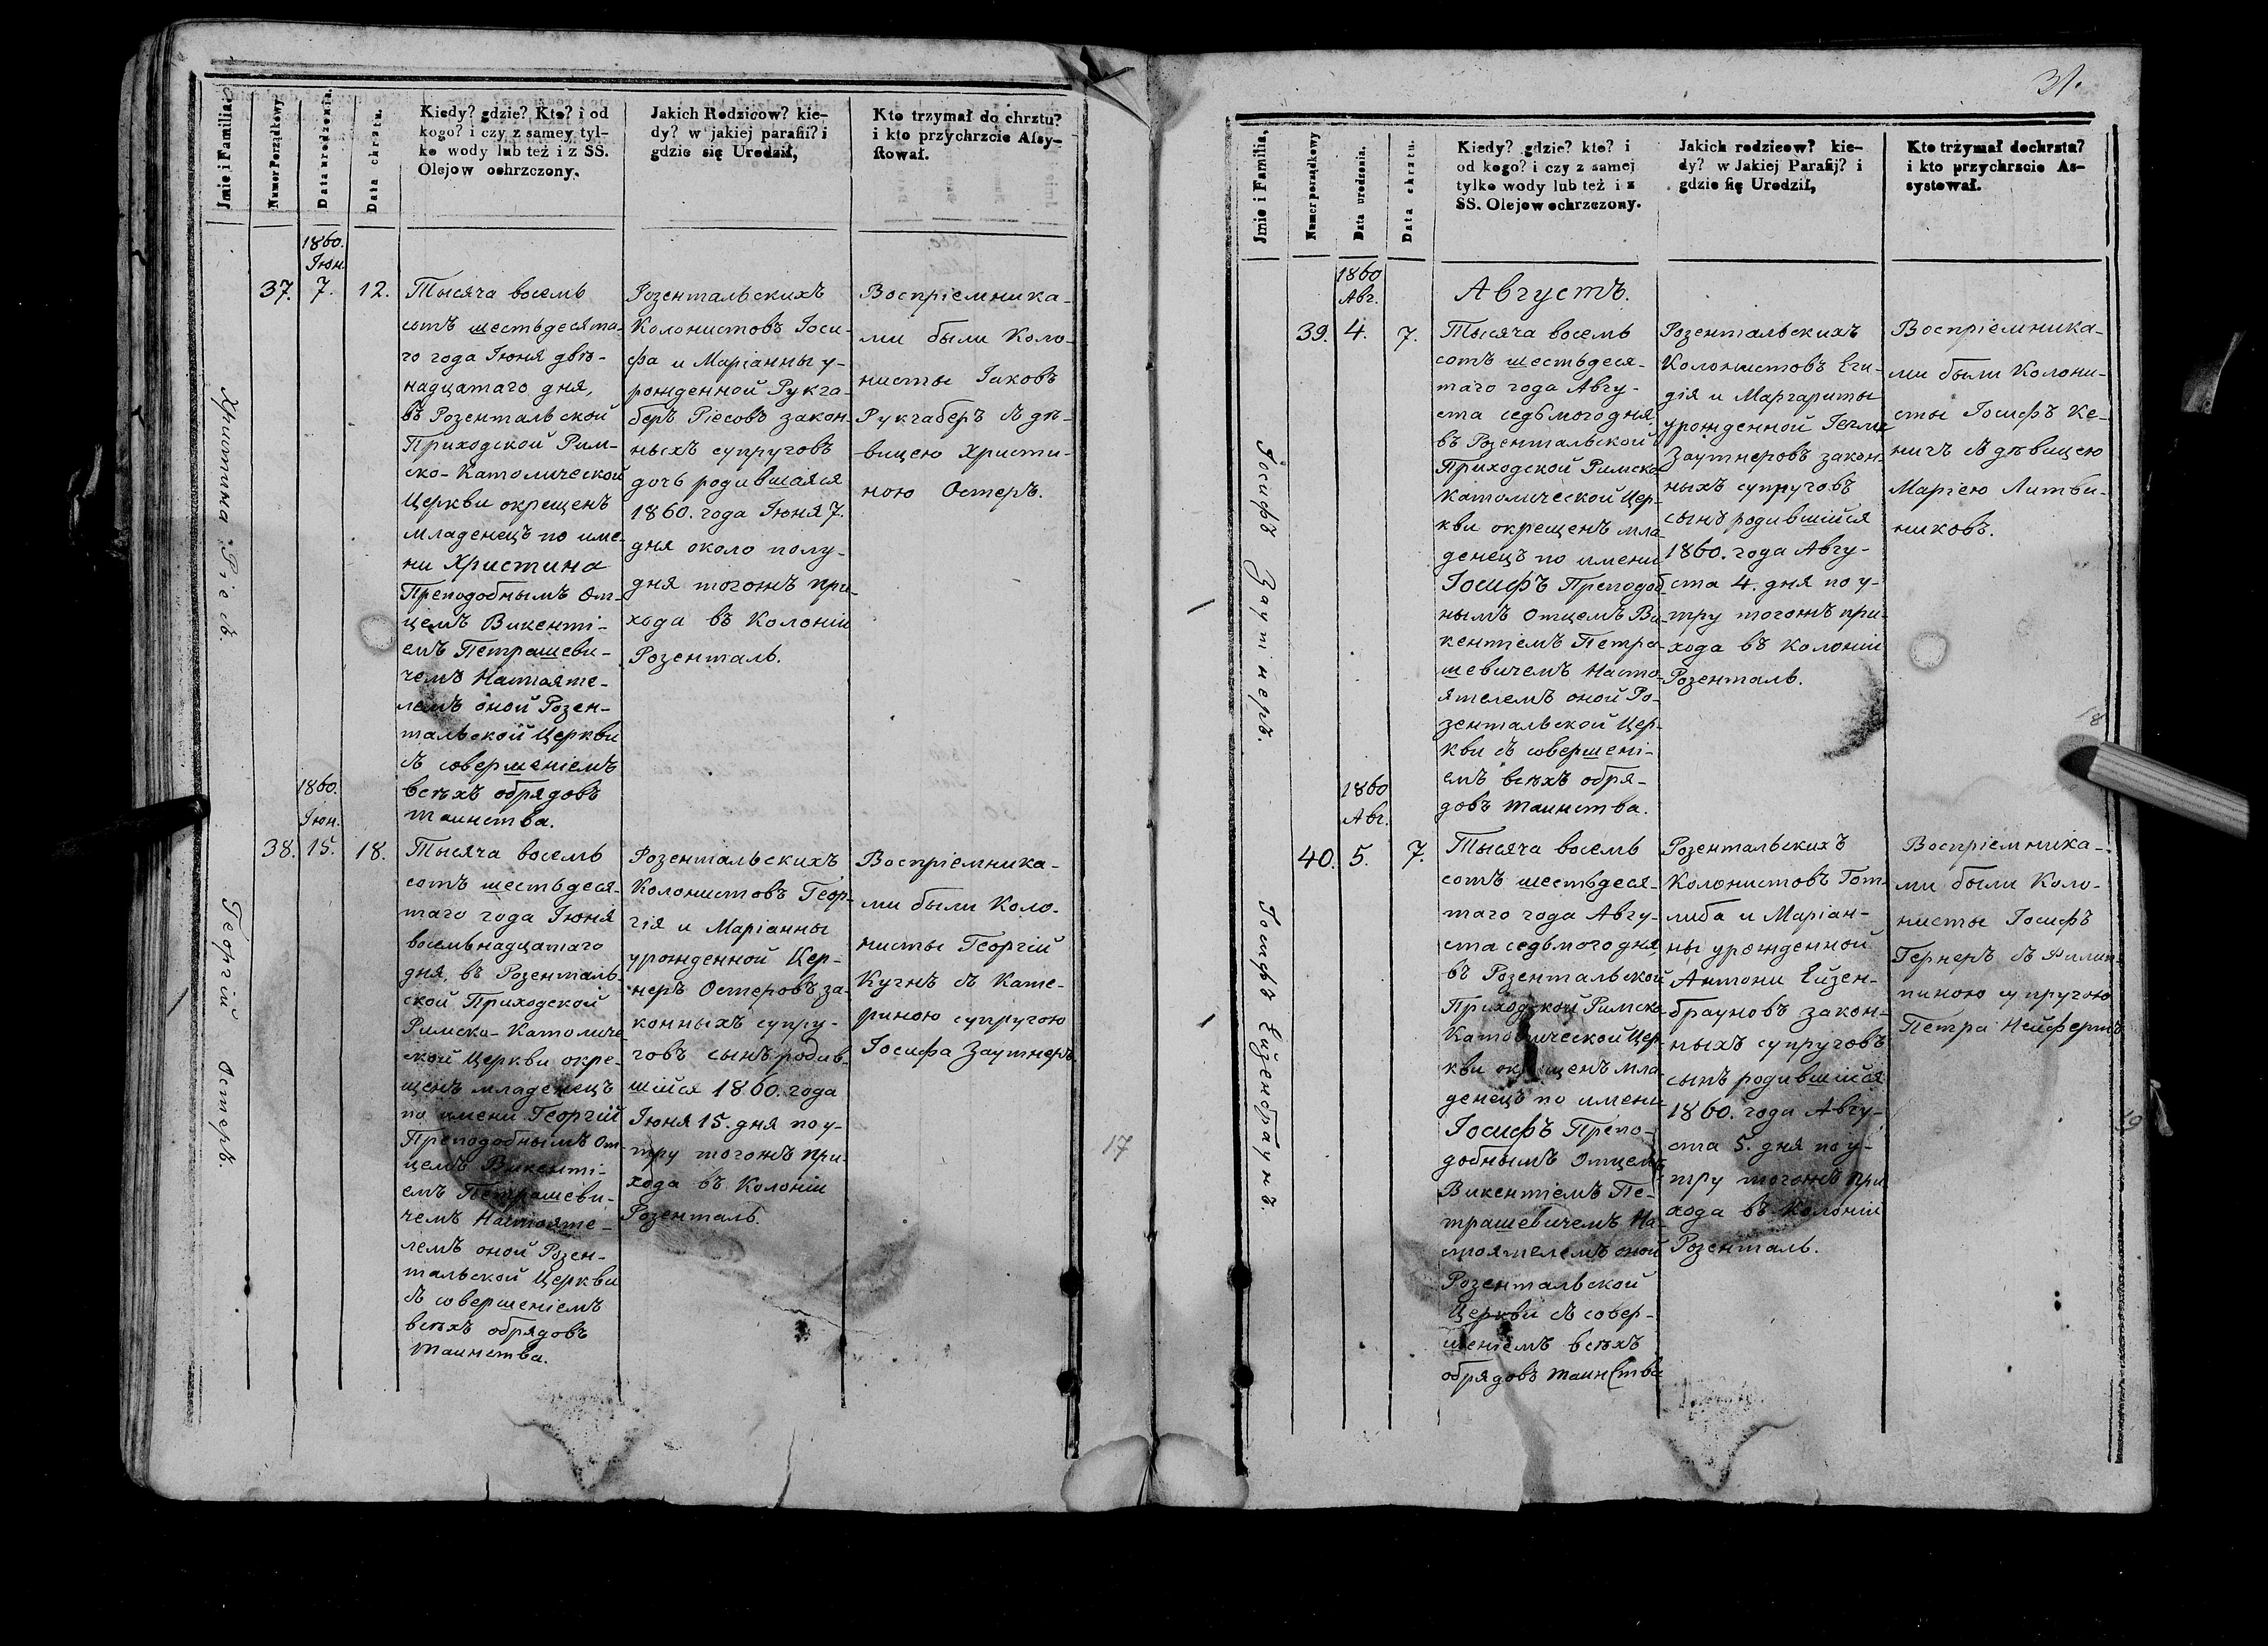 Jmie i Familia.
Numer Porządkowy
Data urodzenia.
Data chrztu.
Kiedy? gdzie? Kto? i od
kogo? i czy z samey tyl-
ko wody lub też i z SS.
Olejow ochrzczony.
Jakich Rodzicow? kie-
dy? w jakiej parafii? i
gdzie się Urodził,
Kto trzymał do chrztu?
i kto przychrzcie Assy-
stował.
Христина Ріесъ.
37.
1860.
Іюн.
7.
12.
Тысяча восемь
сотъ шестьдесята-
го года Іюня двѣ-
надцатаго дня,
въ Розентальской
Приходской Рим-
ско-Католической
Церкви окрещенъ
младенецъ по име-
ни Христина
Преподобнымъ От-
цемъ Викенті-
емъ Петрашеви-
чемъ Настояте-
лемъ оной Розен-
тальской Церкви
съ совершеніемъ
всѣхъ обрядовъ
таинства.
Розентальскихъ
Колонистовъ Іоси-
фа и Маріанны у-
рожденной Рукга-
беръ Ріесовъ закон-
ныхъ супруговъ
дочь родившаяся
1860. года Іюня 7.
дня около полу-
дня тогожъ при-
хода въ Колоніи
Розенталь.
Воспріемника-
ми были Коло-
нисты Іаковъ
Рукгаберъ съ дѣ-
вицею Христи-
ною Остеръ.
Георгій Остеръ.
38.
1860.
Іюн.
15.
18.
Тысяча восемь
сотъ шестьдеся-
таго года Іюня
восемьнадцатаго
дня, въ Розенталь-
ской Приходской
Римско-Католиче
ской Церкви окре-
щенъ младенецъ
по имени Георгій
Преподобнымъ От-
цемъ Викенті-
емъ Петрашеви-
чемъ Настояте-
лемъ оной Розен-
тальской Церкви
съ совершеніемъ
всѣхъ обрядовъ
таинства.
Розентальскихъ
Колонистовъ Геор-
гія и Маріанны
урожденной Кер-
неръ Остеровъ за-
конныхъ супру-
говъ сынъ родив-
шійся 1860. года
Іюня 15. дня по у-
тру тогожъ при-
хода въ Колоніи
Розенталь.
Воспріемника-
ми были Коло-
нисты Георгій
Кугнъ съ Кате-
риною супругою
Іосифа Заутнеръ.
17
31.
Jmie i Familia,
Numer porządkowy
Data urodzenia.
Data chrztu.
Kiedy? gdzie? kto? i
od kogo? i czy z samej
tylko wody lub też i z
SS. Olejow ochrzczony.
Jakich rodzicow? kie-
dy? w Jakiej Parafij? i
gdzie się Urodził,
Kto trżymał dochrzta?
i kto przychrzcie As-
systował.
Августъ.
Іосифъ Заутнеръ.
39.
1860
Авг.
4.
7.
Тысяча восемь
сотъ шестьдеся-
таго года Авгу-
ста седьмого дня,
въ Розентальской
Приходской Римско-
Католической Цер-
кви окрещенъ мла-
денецъ по имени
Іосифъ Преподоб
нымъ Отцемъ Ви-
кентіемъ Петра-
шевичемъ Насто-
ятелемъ оной Ро-
зентальской Цер-
кви съ совершені-
емъ всѣхъ обря-
довъ таинства.
Розентальскихъ
Колонистовъ Еги-
дія и Маргариты
урожденной
Заутнеровъ закон-
ныхъ супруговъ
сынъ родившійся
1860. года Авгу-
ста 4. дня по у-
тру тогожъ при-
хода въ Колоніи
Розенталь.
Воспріемника-
ми были Колони-
сты Іосифъ Ке-
ничъ съ дѣвицею
Маріею Литви-
никовъ.
18
Іосифъ Ейзенбраунъ.
40.
1860
Авг.
5.
7.
Тысяча восемь
сотъ шестьдеся-
таго года Авгу-
ста седьмого дня,
въ Розентальской
Приходской Римско-
Католической Цер-
кви окрещенъ мла-
денецъ по имени
Іосифъ Препо-
добнымъ Отцемъ
Викентіемъ Пе-
трашевичемъ На-
стоятелемъ оной
Розентальской
Церкви съ совер-
шеніемъ всѣхъ
обрядовъ таинства
Розентальскихъ
Колонистовъ Гот-
либа и Маріан-
ны урожденной
Антони Ейзен-
брауновъ закон-
ныхъ супруговъ
сынъ родившійся
1860. года Авгу-
ста 5. дня по у-
тру тогожъ при
хода въ Колоніи
Розенталь.
Воспріемника-
ми были Коло-
нисты Іосифъ
Гернеръ съ Филип-
пиною супругою
Петра Нейфертъ
19